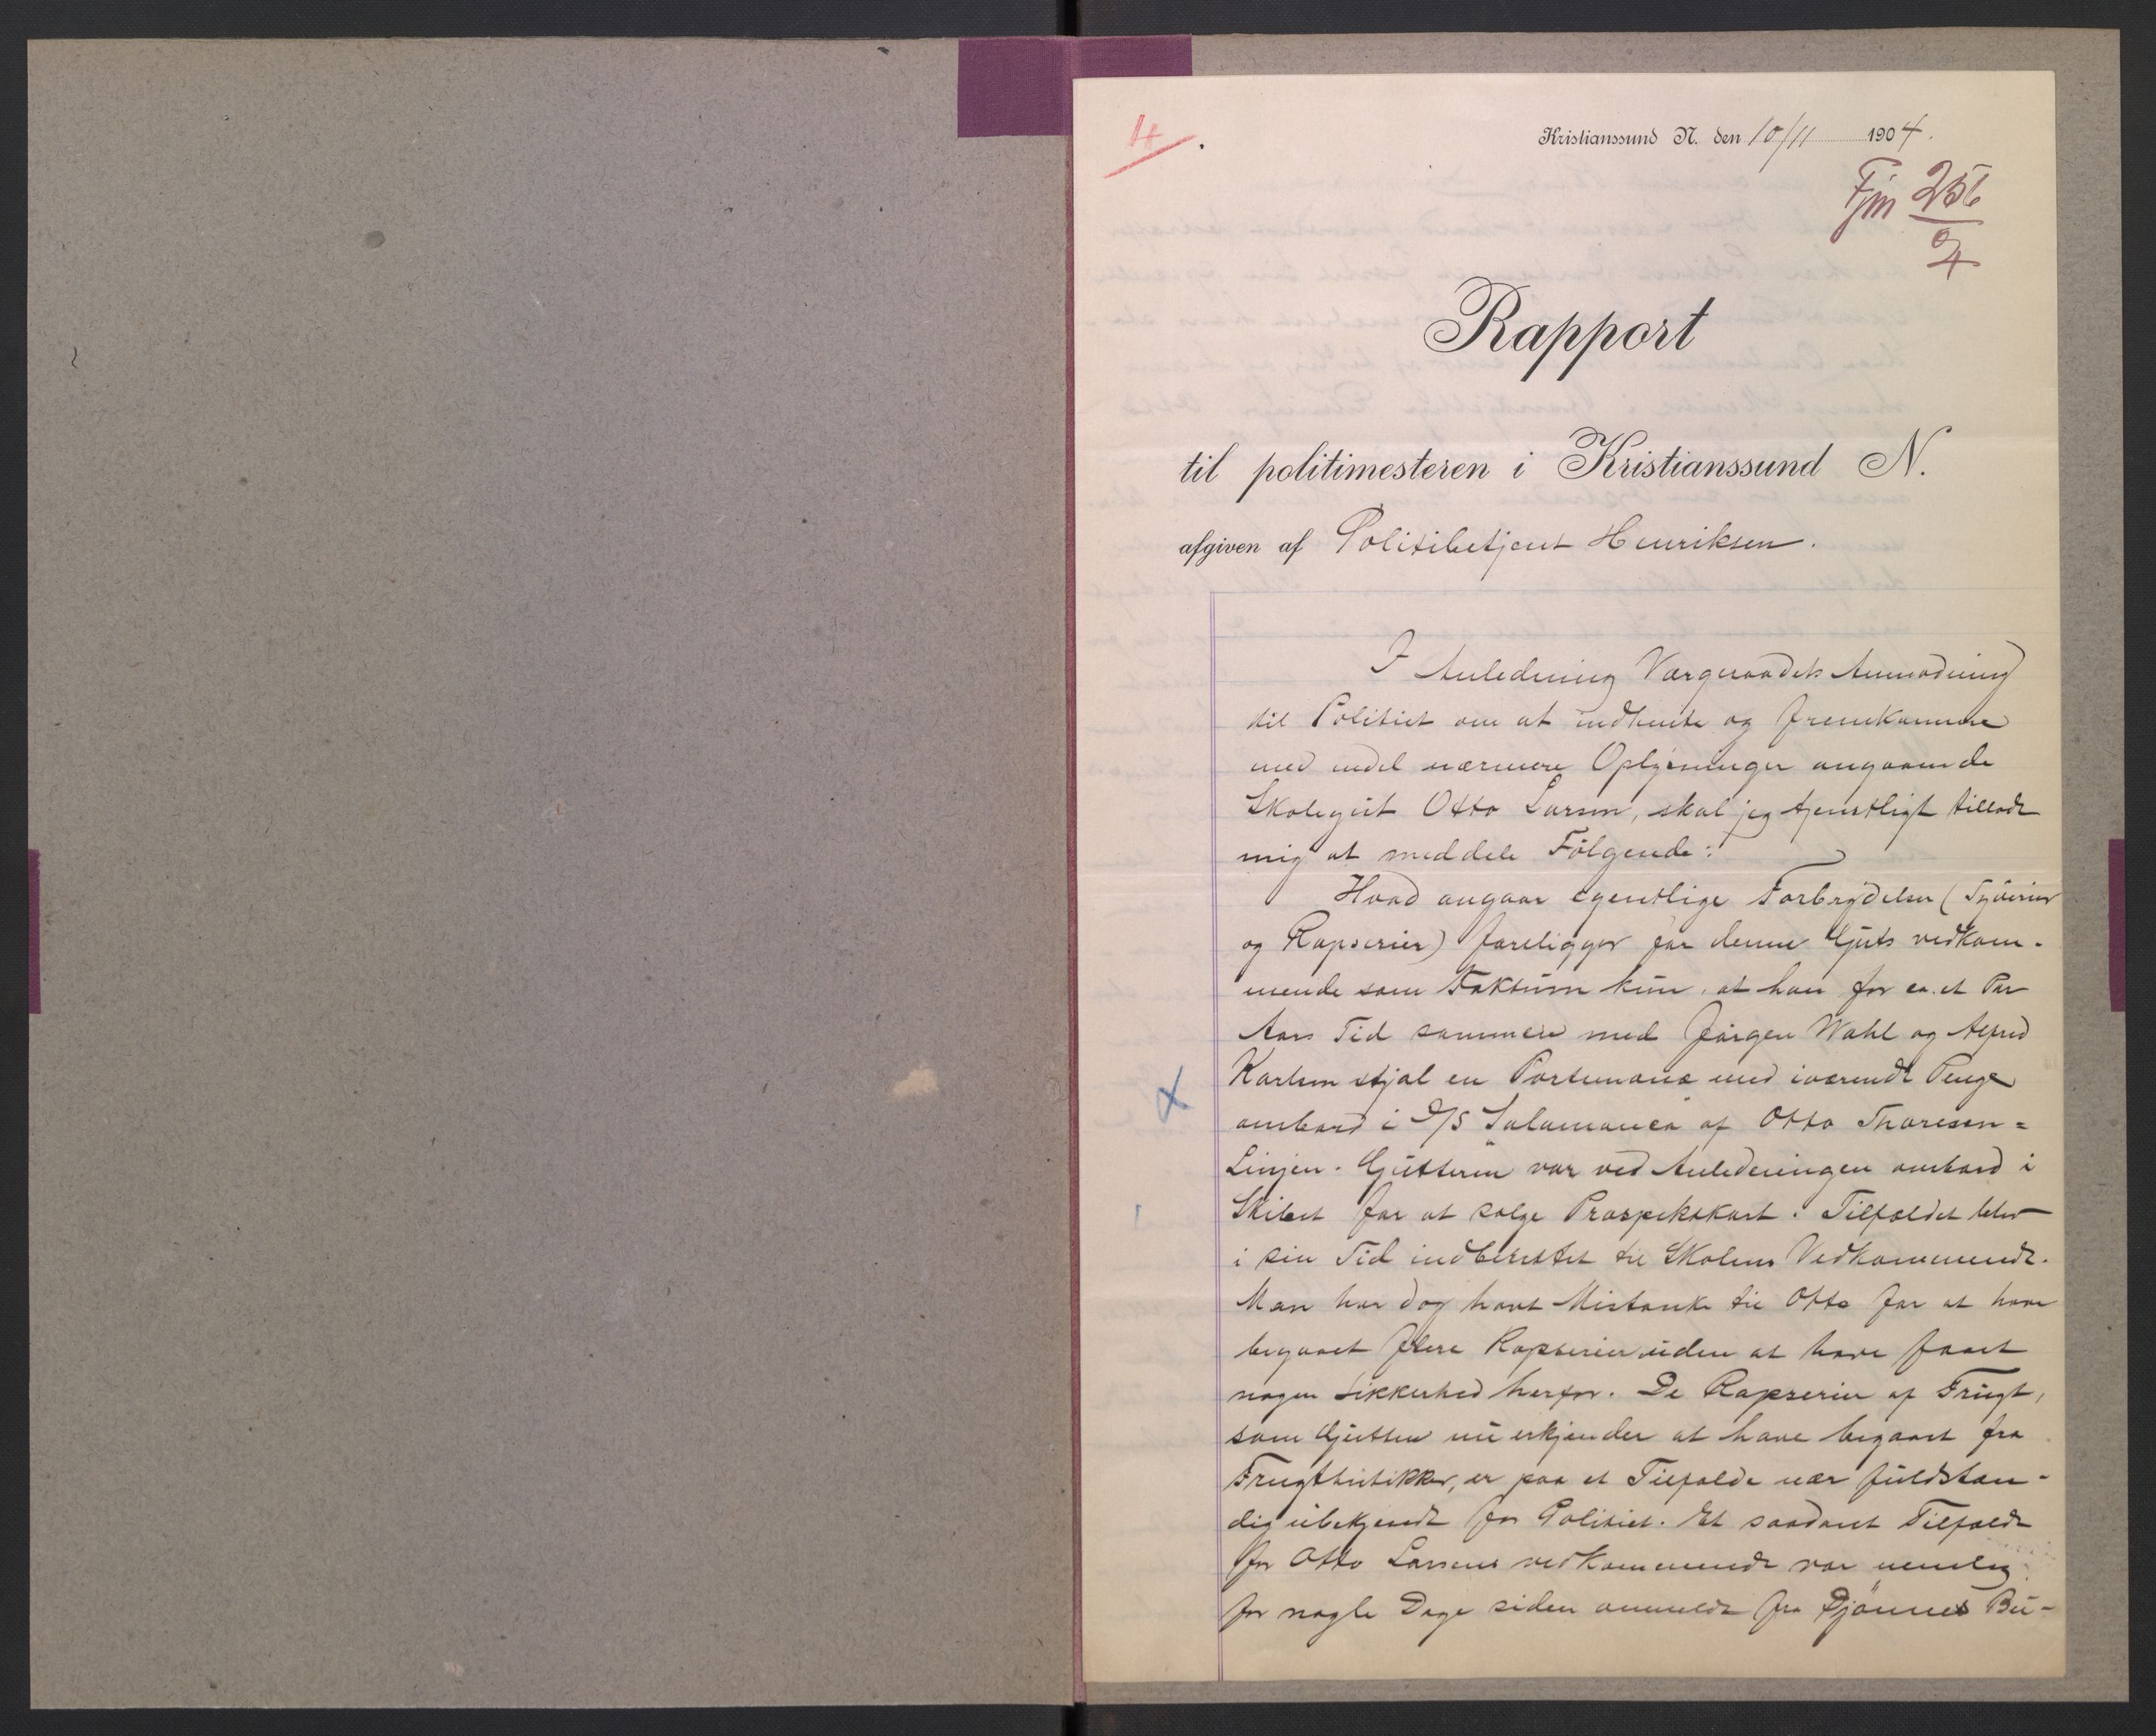 4.
Kristianssund N. den 10/11 1904.
Fjm 256/04
Rapport
til politimesteren i Kristianssund N.
afgiven af Politibetjent Henriksen.
I Anledning Værgeraadets Anmodning
til Politiet om at indhente og fremkomme
med endel nærmere Oplysninger angaaende
Skolegut Otto Larsen, skal jeg tjenstligt tillade
mig at meddele Følgende:
Hvad angaar egentlige Forbrydelser (Tyverier
og Rapserier) foreligger for denne Gjuts vedkom-
mende som Faktum kun, at han for ca. et Par
Aars Tid sammen med Jørgen Wahl og Alfred
Karlsen stjal en Portemonæ med iværende Penge
ombord i D/S Salamanca af Otto Thoresen=
Linjen. Gjutterne var ved Anledningen ombord i
Skibet for at sælge Prospektkort. Tilfældet blev
i sin Tid indberettet til Skolens Vedkommende.
Man har dog havt Mistanke til Otto for at have
begaaet flere Rapserier uden at have faaet
nogen Sikkerhed herfor. De Rapserier af Frugt,
som Gjutten nu erkjender at have begaaet fra
Frugtbutikker, er paa et Tilfælde nær fuldstæn-
dig ubekjendt for Politiet. Et saadant Tilfælde
for Otto Larsens vedkommende var nemlig
for nogle Dage siden anmeldt fra Bjønnes Bu-